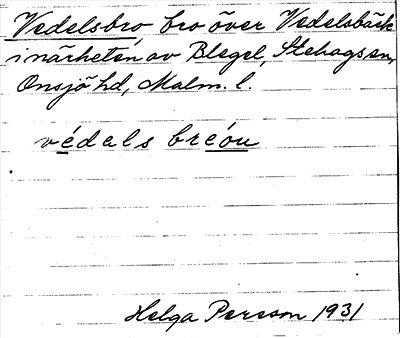 Vedelsbro bro över Vedelsbäck
i närheten av Blegel, Stehags sn,
Onsjö hd, Malm. l.
védels breóu
Helga Persson 1931